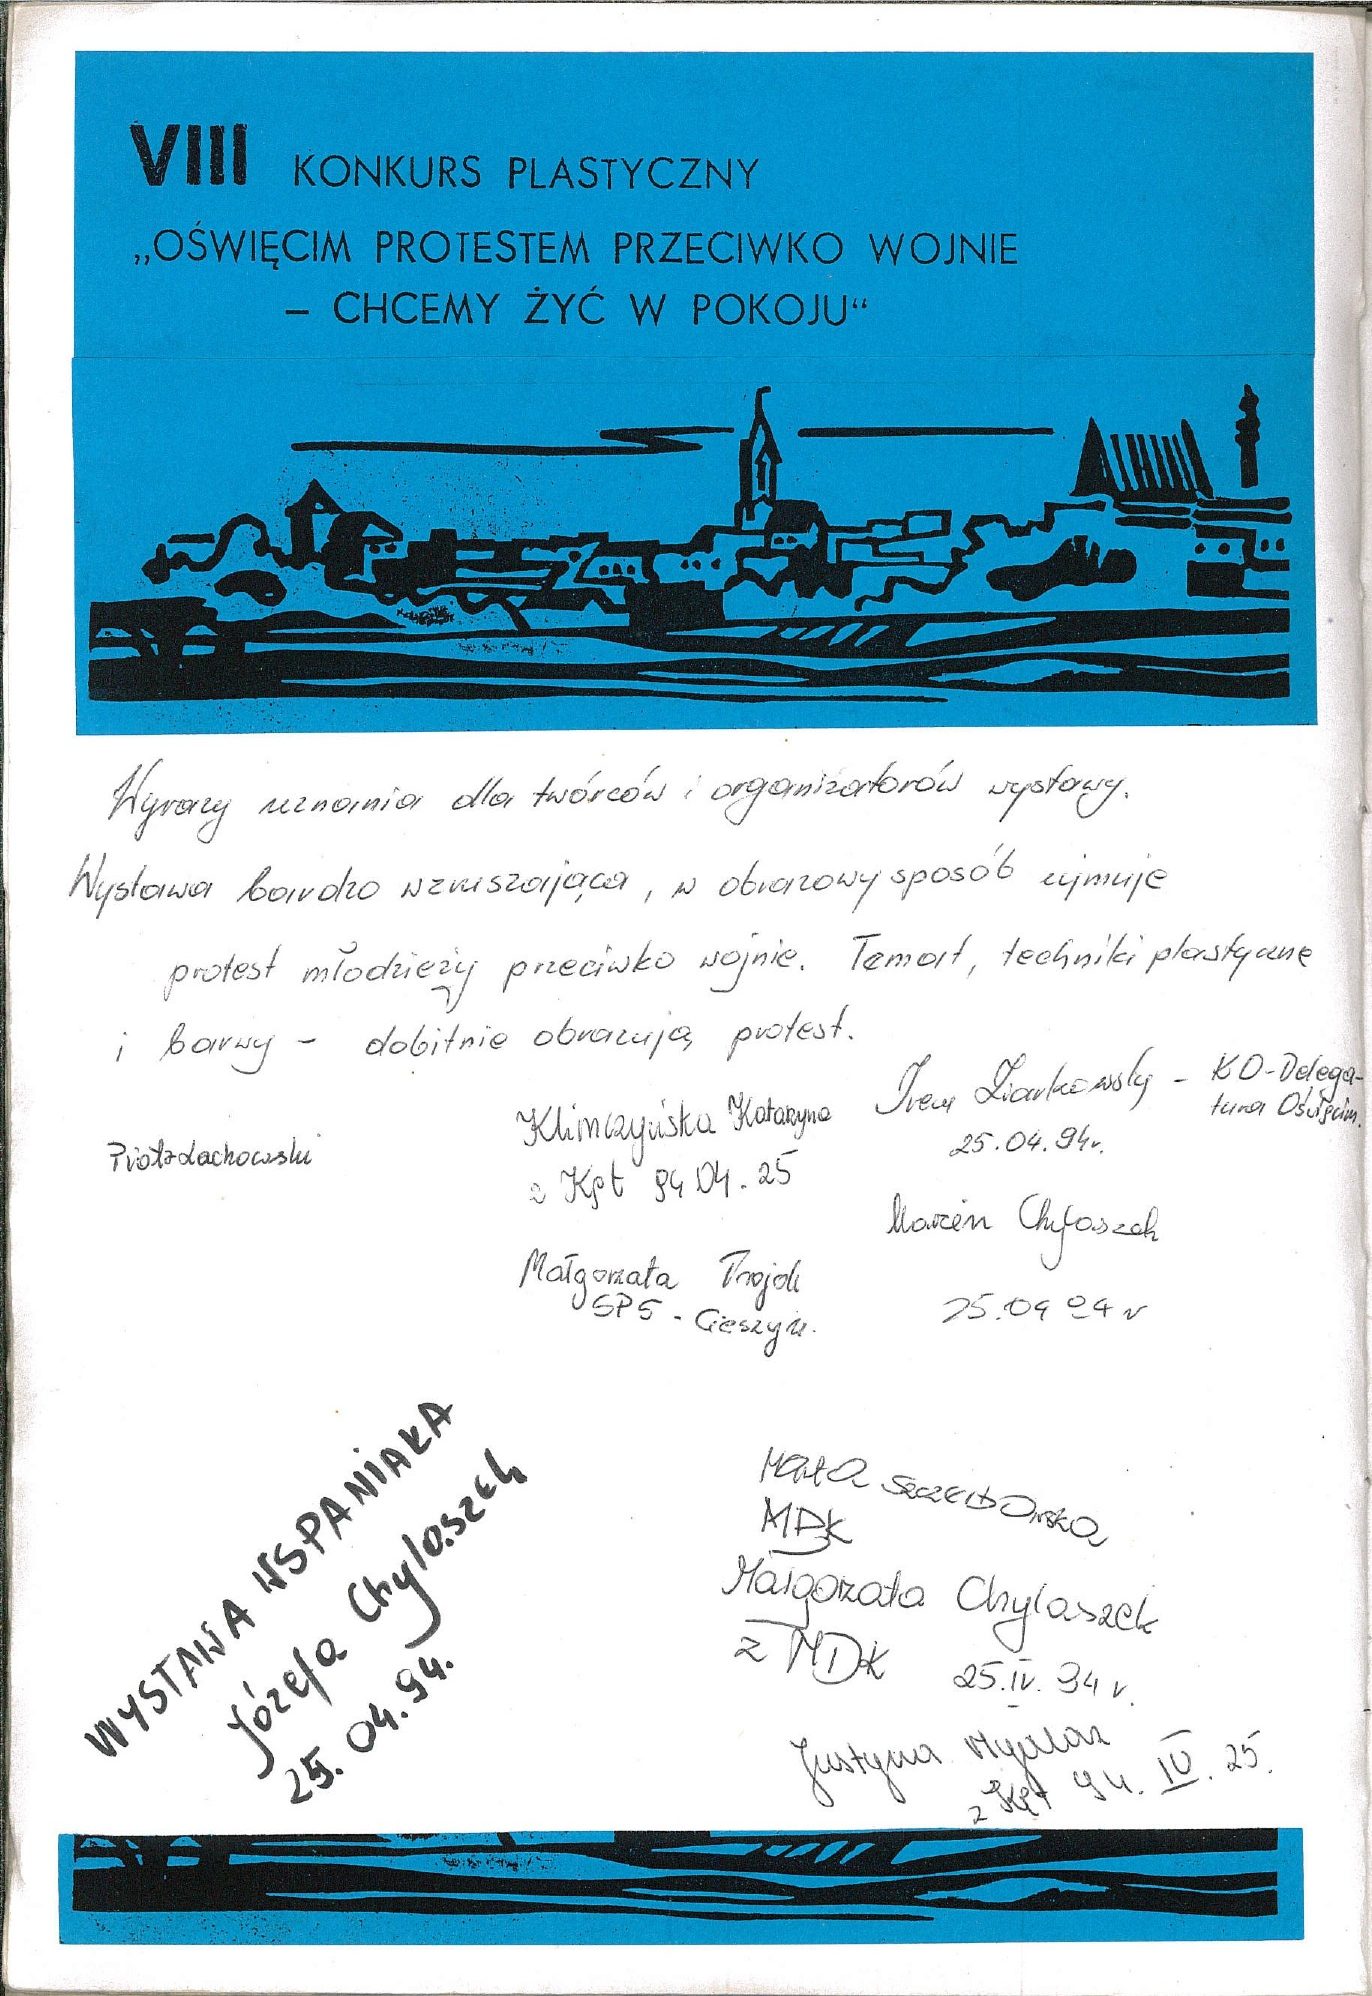 VIII KONKURS PLASTYCZNY
„OŚWIĘCIM PROTESTEM PRZECIWKO WOJNIE
– CHCEMY ŻYĆ W POKOJU“
Wyrazy uznania dla twórców i organizatorów wystawy.
Wystawa bardzo wzruszająca, w obrazowy sposób ujmuje
protest młodzieży przeciwko wojnie. Temat, techniki plastyczne
i barwy – dobitnie obrazują protest.
Piotr Lachowski
Klimczyńska Katarzyna
z Kęt 94 04. 25
Małgorzata Trojak
SP5 - Cieszyn.
Ziarkowsky – KO-Delega-
tura Oświęcim.
25.04.94r.
Marcin Chylaszek
25.04 94 r
WYSTAWA WSPANIAŁA
Józefa Chylaszek
25. 04. 94.
Marta
MDK
Małgorzata Chylaszek
z MDK 25.IV. 94 r.
Justyna
z Kęt 94. IV. 25.